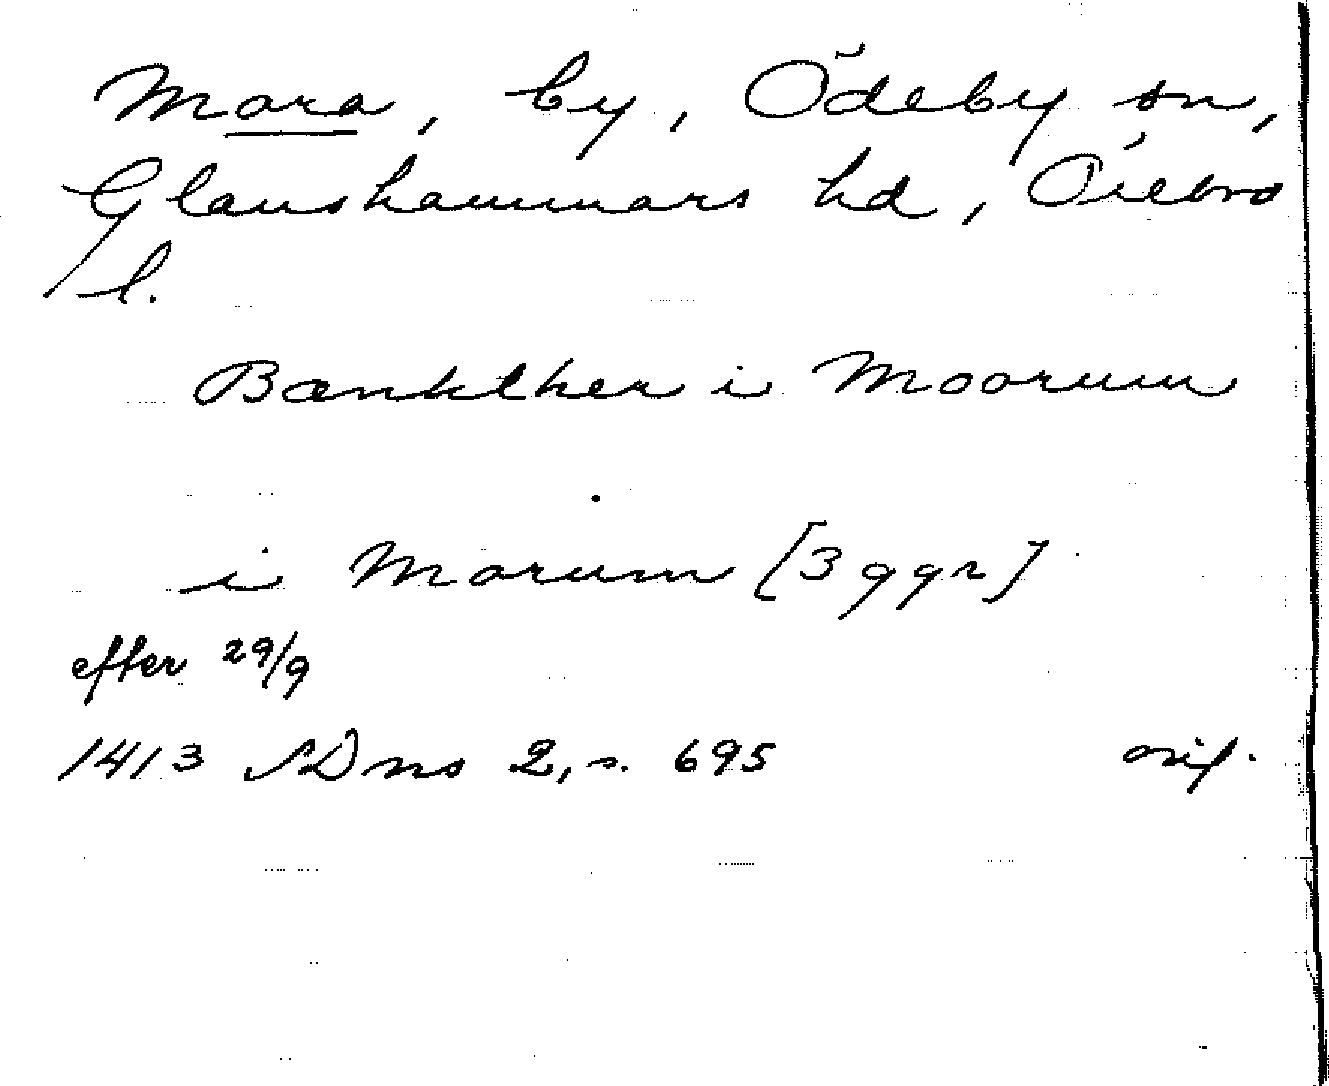 Mora, by, Ödeby sn,
Glanshammars hd, Örebro
l.
Bænkther i Moorum
i Morum [3 ggr]
efter 29/9
1413 SDns 2, s. 695 orig.